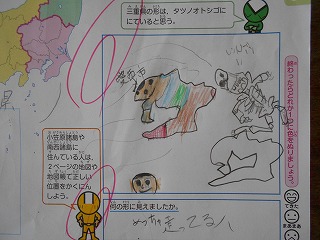 三重県の形は、タツノオトシゴに
にていると思う。
終わったらどれか一つに色をぬりましょう。
小笠原諸島や
南西諸島に
住んでいる人は、
2ページの地図や
地図帳で正しい
位置をかくにん
しよう。
何の形に見えましたか。
めっちゃ走ってる人
できた
まあまあ